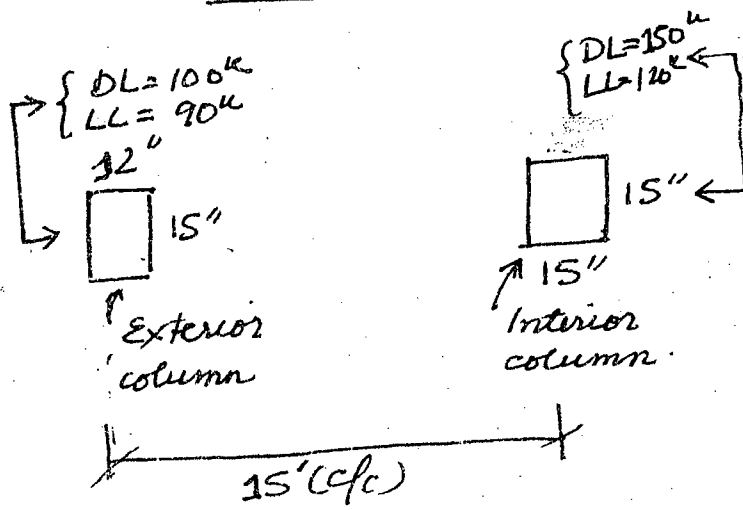 DL=100ᵏ
LL= 90ᵏ
12"
15"
Exterior
column
DL=150ᵏ
LL=120ᵏ
15"
15"
Interior
column.
15'(c/c)